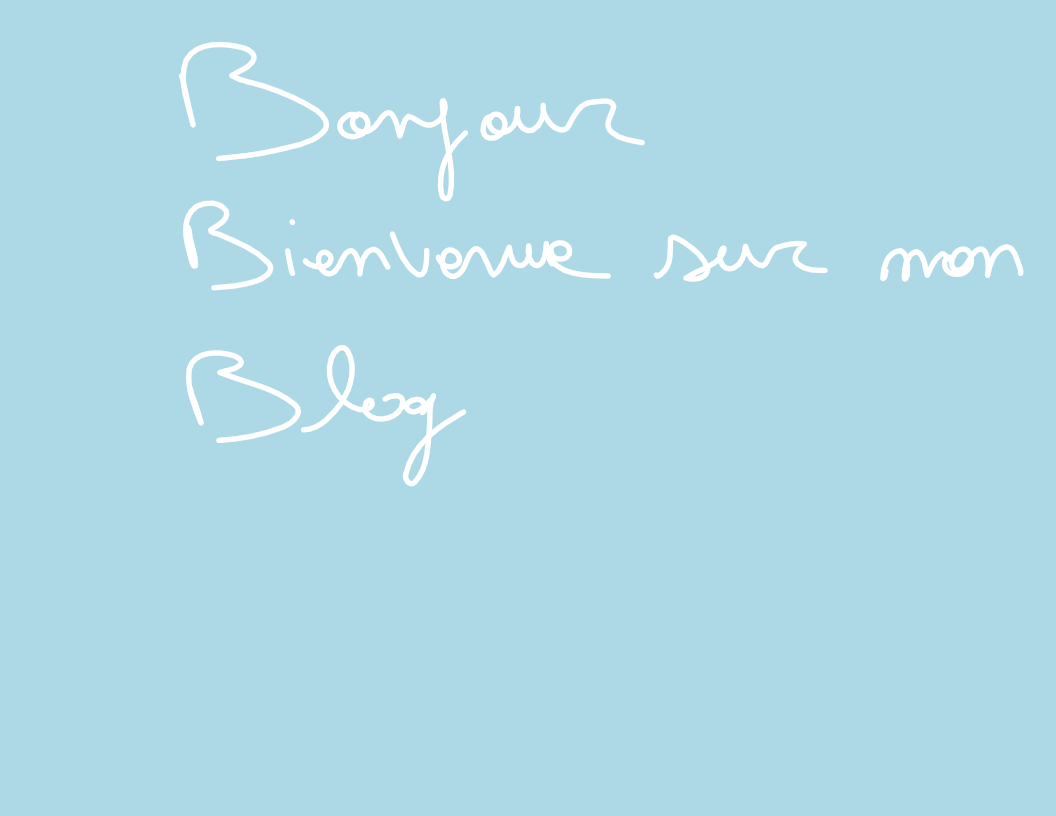 Bonjour
Bienvenue sur mon
Blog